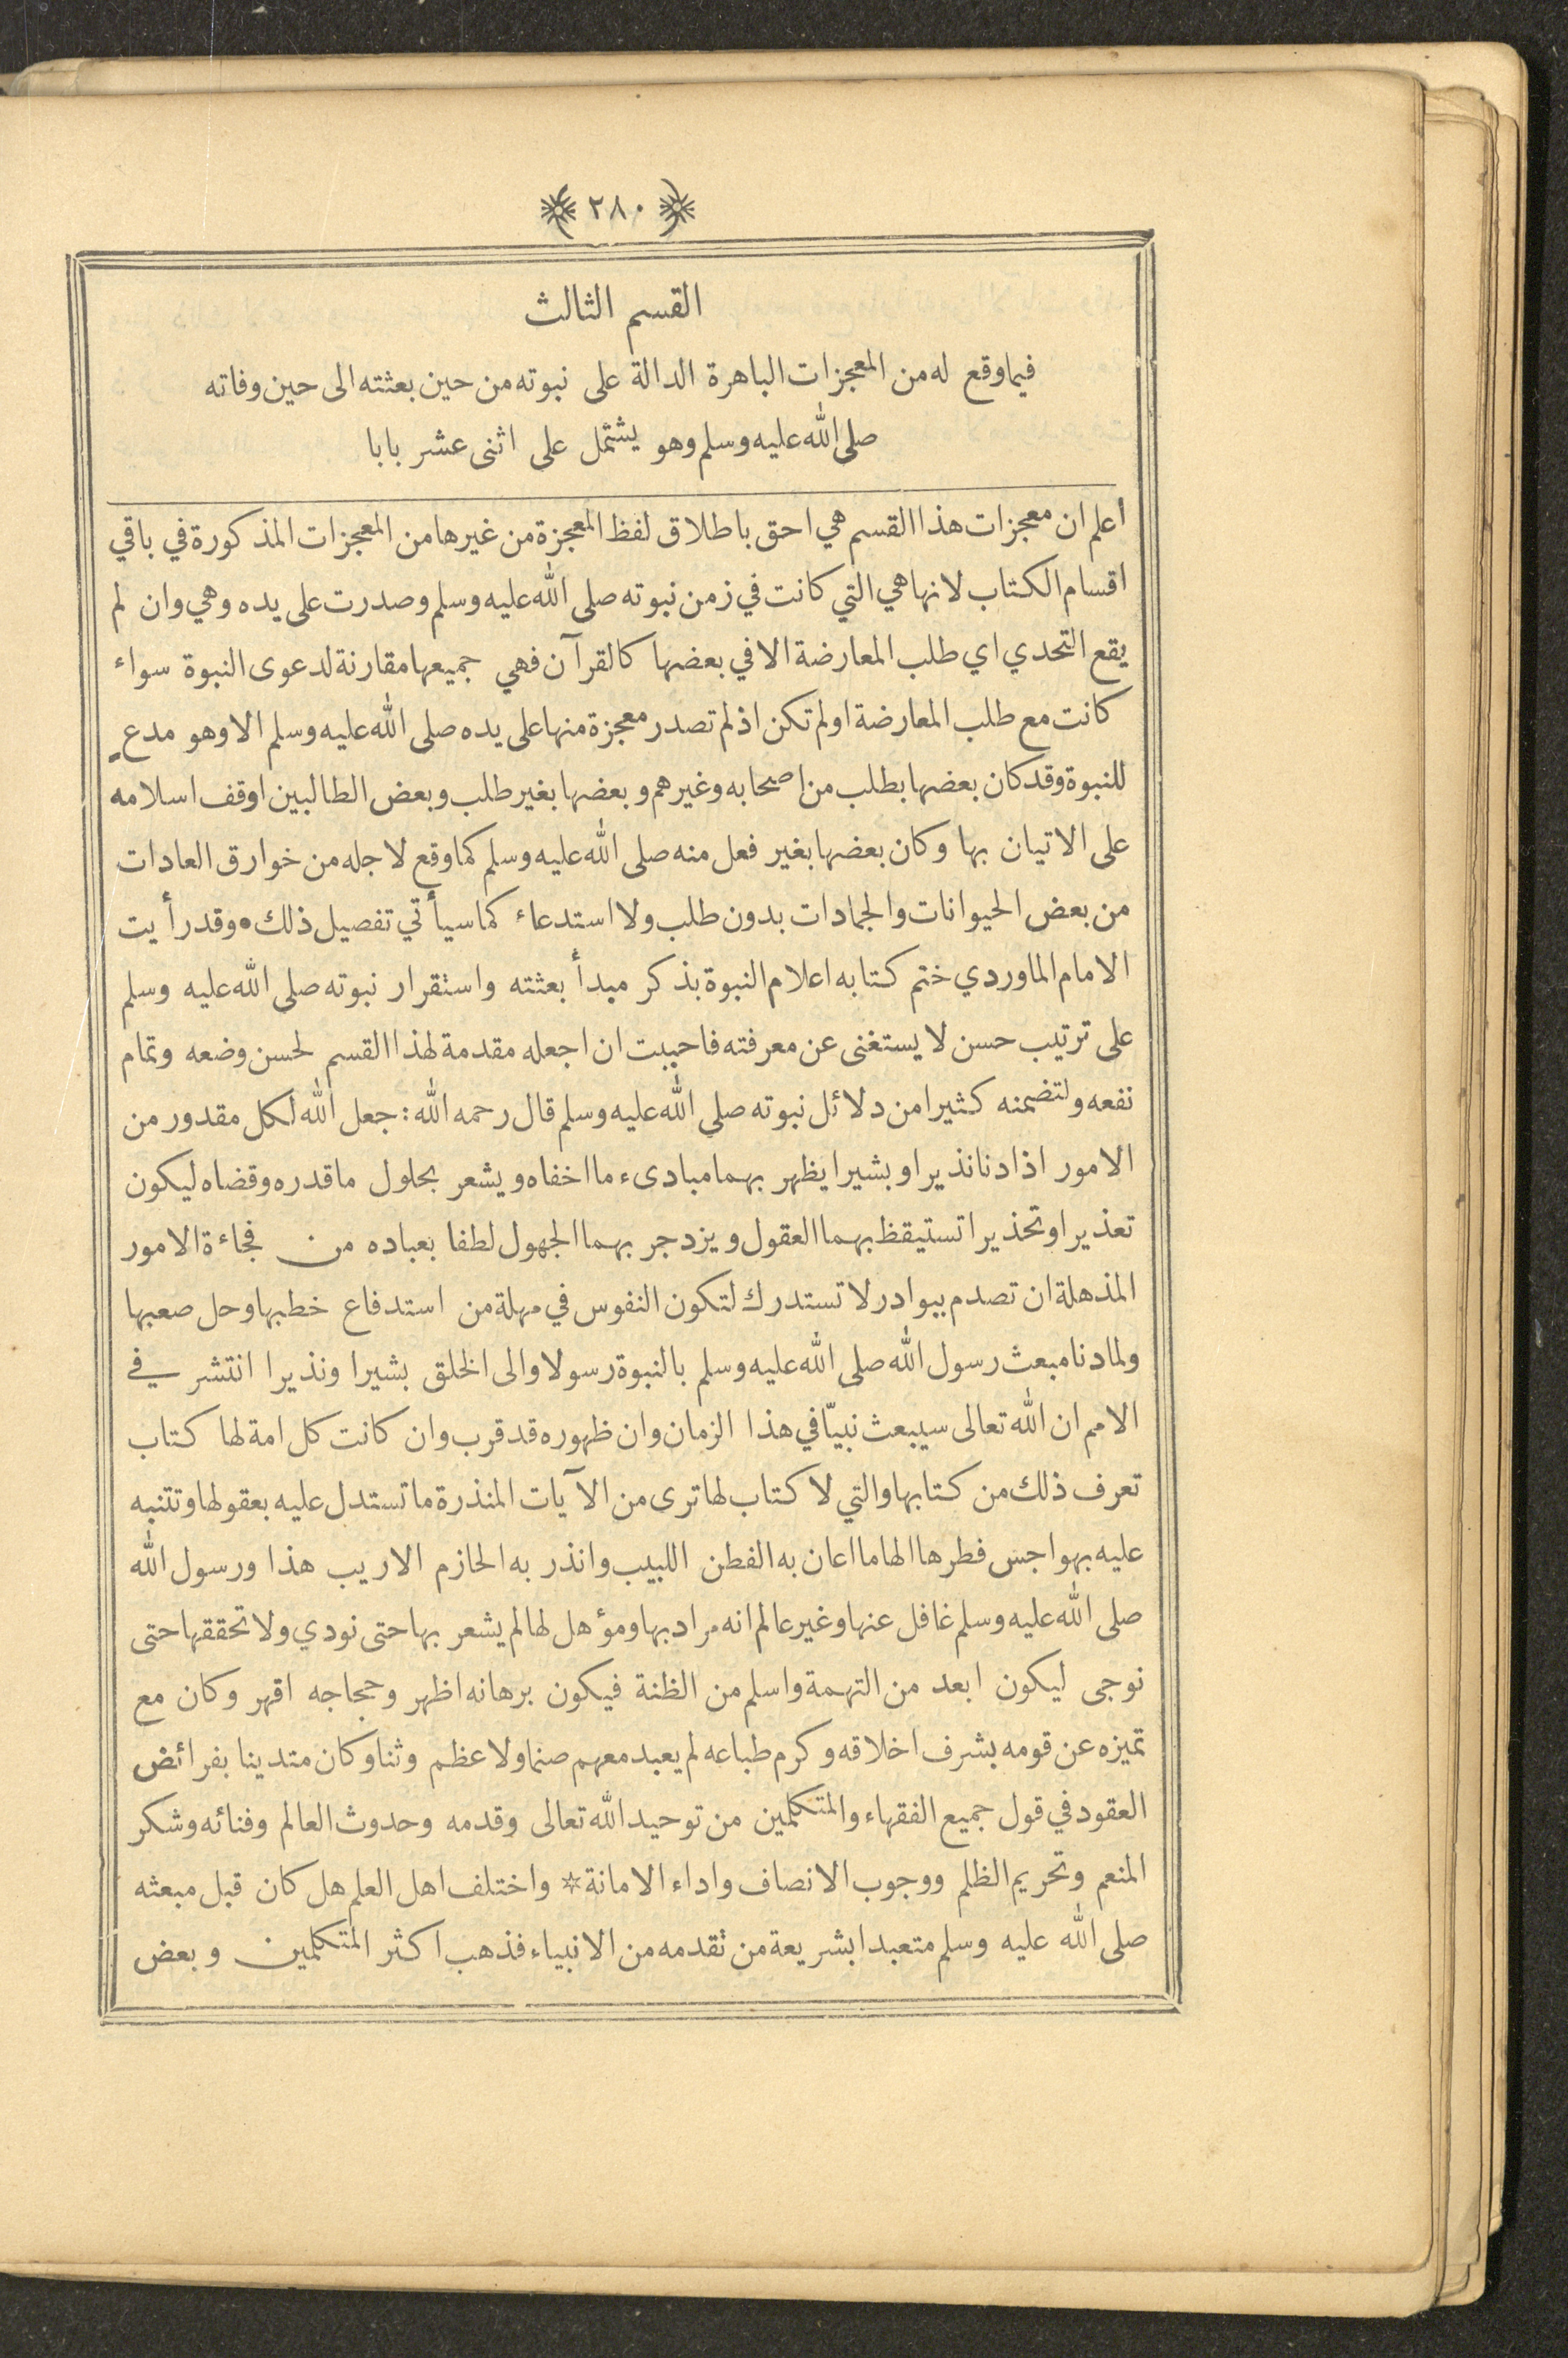 ٢٨٠
القسم الثالث
فيما وقع له من المعجزات الباهرة الدالة على نبوته من حين بعثته الى حين وفاته
صلى الله عليه وسلم وهو يشتمل على اثنى عشر بابا
أعلم ان معجزات هذا القسم هي احق باطلاق لفظ المعجزة من غيرها من المعجزات المذكورة في باقي
اقسام الكتاب لانها هي التي كانت في زمن نبوته صلى الله عليه وسلم وصدرت على يده وهي وان لم
يقع التحدي اي طلب المعارضة الا في بعضها كالقرآن فهي جميعها مقارنة لدعوى النبوة سواء
كانت مع طلب المعارضة او لم تكن اذ لم تصدر معجزة منها على يده صلى الله عليه وسلم الا وهو مدعٍ
للنبوة وقد كان بعضها بطلب من اصحابه وغيرهم وبعضها بغير طلب وبعض الطالبين اوقف اسلامه
على الاتيان بها وكان بعضها بغير فعل منه صلى الله عليه وسلم كما وقع لاجله من خوارق العادات
من بعض الحيوانات والجمادات بدون طلب ولا استدعاء كما سيأتي تفصيل ذلك • وقد رأيت
الامام الماوردي ختم كتابه اعلام النبوة بذكر مبدأ بعثته واستقرار نبوته صلى الله عليه وسلم
على ترتيب حسن لا يستغنى عن معرفته فاحببت ان اجعله مقدمة لهذا القسم لحسن وضعه وتمام
نفعه ولتضمنه كثيرا من دلائل نبوته صلى الله عليه وسلم قال رحمه الله : جعل الله لكل مقدور من
الامور اذا دنا نذيرا وبشيرا يظهر بهما مبادىء ما اخفاه ويشعر بحلول ما قدره وقضاه ليكون
تعذيرا وتحذيرا تستيقظ بهما العقول ويزدجر بهما الجهول لطفا بعباده من فجاءة الامور
المذهلة ان تصدم ببوادر لا تستدرك لتكون النفوس في مهلة من استدفاع خطبها وحل صعبها
ولما دنا مبعث رسول الله صلى الله عليه وسلم بالنبوة رسولا والى الخلق بشيرا ونذيرا انتشر في
الامم ان الله تعالى سيبعث نبيّا في هذا الزمان وان ظهوره قد قرب وان كانت كل امة لها كتاب
تعرف ذلك من كتابها والتي لا كتاب لها ترى من الآيات المنذرة ما تستدل عليه بعقولها وتتنبه
عليه بهواجس فطرها الهاما اعان به الفطن اللبيب وانذر به الحازم الاريب هذا ورسول الله
صلى الله عليه وسلم غافل عنها وغير عالم انه مراد بها ومؤهل لها لم يشعر بها حتى نودي ولا تحققها حتى
نوجى ليكون ابعد من التهمة واسلم من الظنة فيكون برهانه اظهر وحجاجه اقهر وكان مع
تميزه عن قومه بشرف اخلاقه وكرم طباعه لم يعبد معهم صنما ولا عظم وثنا وكان متدينا بفرائض
العقود في قول جميع الفقهاء والمتكلمين من توحيد الله تعالى وقدمه وحدوث العالم وفنائه وشكر
المنعم وتحريم الظلم ووجوب الانصاف واداء الامانة * واختلف اهل العلم هل كان قبل مبعثه
صلى الله عليه وسلم متعبدا بشريعة من تقدمه من الانبياء فذهب اكثر المتكلمين وبعض